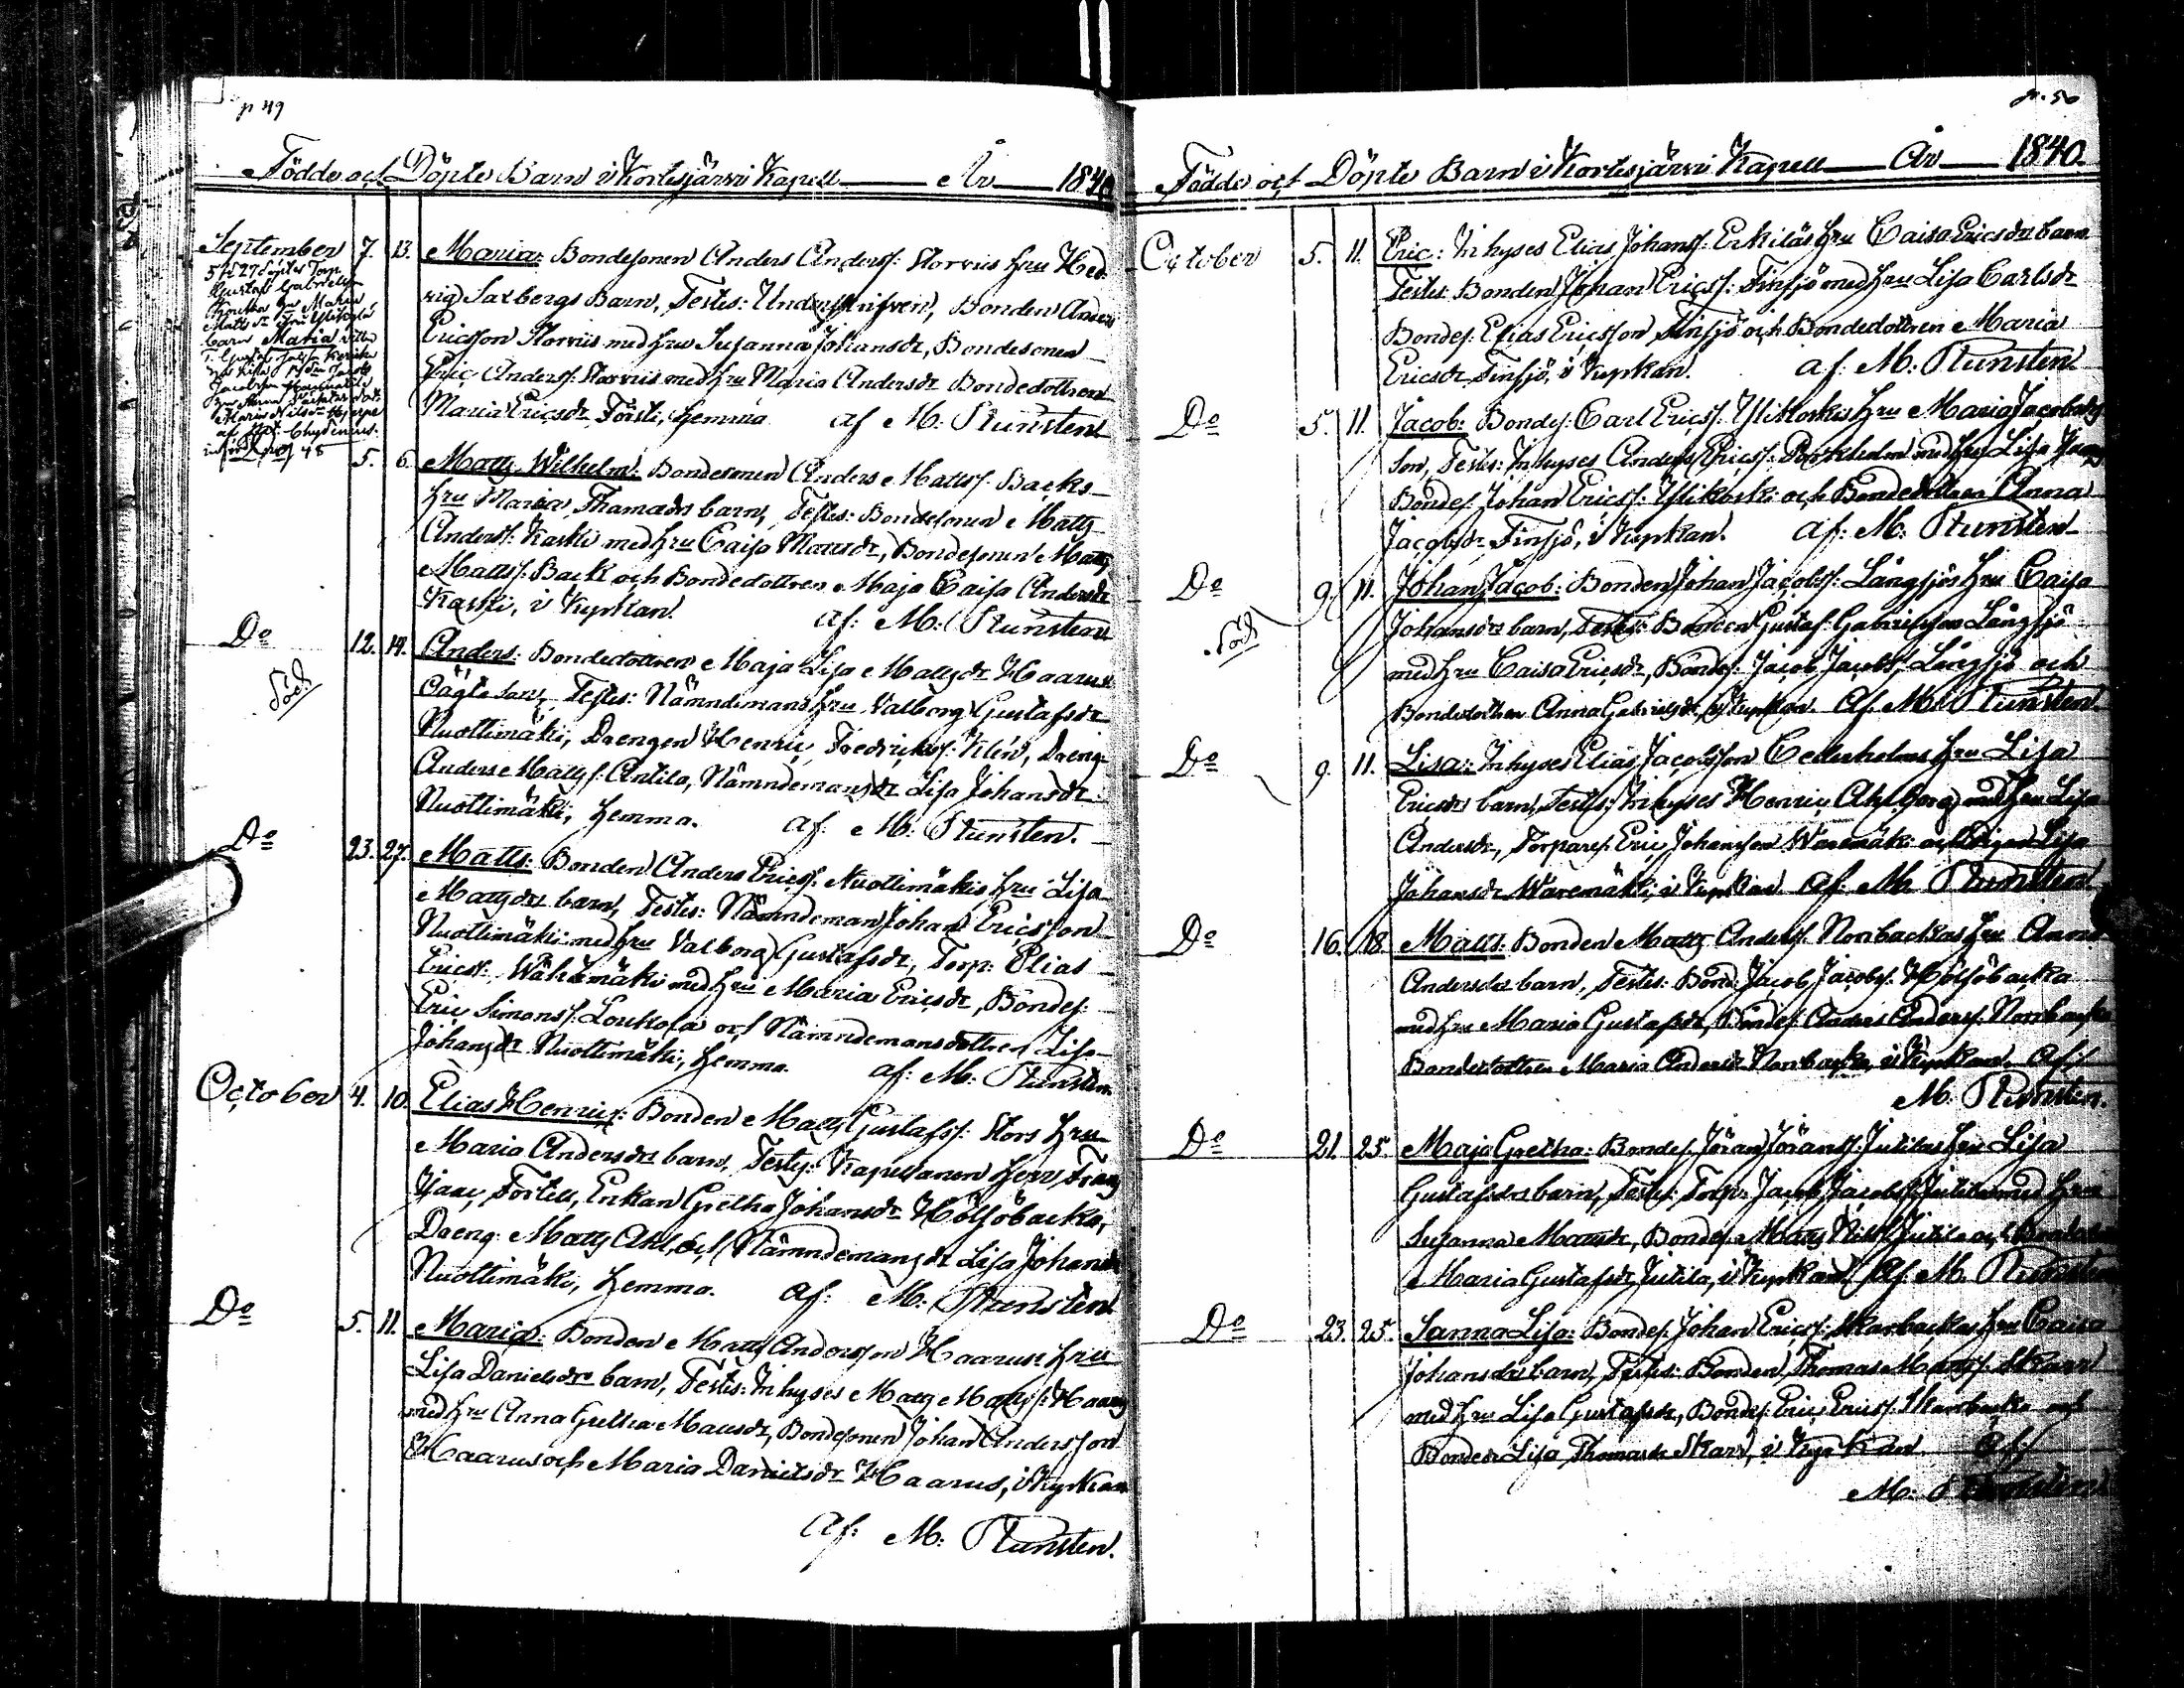 p 49
Födde och Döpte Barn i Kortesjärvi Kapell År 1840
September 7. 13. Maria: Bondesonen Anders Anderss: Storriis Hru Hed-
vig Saxbergs Barn, Testes: Underskrifven, Bonden Anders
Ericsson Storriis med Hru Susanna Johansdr, Bondesonen
Eric Anderss: Storriis med Hru Maria Andersdr Bondedottren
Maria Ericsdr Försti, hemma af M: Stunsten
Gustaf Gabrielss
Hru Maria
barn Maria
af Chydenius
5. 6. Matts Wilhelm: Bondesonen Anders Mattss: Backs
Hru Maria Thomasdrs barn, Testes: Bondesonen Matts
Anderss: Kaski med Hru Caisa Mattsdr, Bondesonen Matts
Mattss: Back och Bondedottren Maja Caisa Andersdr
Kaski, i Kyrkan. af: M: Stunsten
Do 12. 14. Anders: Bondedottren Maja Lisa Mattsdr Haarus
Oägta Son, Testes: Nämndemans Hru Valborg Gustafsdr
död
Nuottimäki, Drengen Henric Fredrikss: Klén, Dreng:
Anders Mattss: Antila, Nämndemansdr Lisa Johansdr
Nuottimäki, hemma. af: M: Stunsten.
Do 23. 27. Matts: Bonden Anders Ericss: Nuottimäkis Hru Lisa
Mattsdrs barn, Testes: Nämndeman Johan Ericsson
Nuottimäki med Hru Valborg Gustafsdr, Torp: Elias
Ericss: Wähämäki med Hru Maria Ericsdr, Bondes:
Eric Simonss: Loukola och Nämndemansdottren Lisa
Johansdr Nuottimäki, hemma. af: M: Stunsten
October 4. 10. Elias Henric: Bonden Matts Gustafss: Stors Hru
Maria Andersdrs barn, Testes: Kapellanen Herr Frans
Isaac Fortell, Enkan Gretha Johansdr Höljöbacka,
Dreng Matts Ahl, och Nämndemansdr Lisa Johansdr
Nuottimäki, hemma. af: M: Stunsten
Do 5. 11. Maria: Bonden Matts Andersson Haarus Hru
Lisa Danielsdrs barn, Testes: Inhyses Matts Mattss: Haarus
med Hru Anna Gretha Mattsdr, Bondesonen Johan Andersson
Haarus och Maria Danielsdr Haarus, i Kyrkan
af: M: Stunsten.
p. 50
Födde och Döpte Barn i Kortesjärvi Kapell År 1840.
October 5. 11. Eric: Inhyses Elias Johanss: Erkiläs Hru Caisa Ericsdrs barn
Testes: Bonden Johan Ericss: Finsjö med Hru Lisa Carlsdr
Bondes: Elias Ericsson Finsjö och Bondedottren Maria
Ericsdr Finsjö, i Kyrkan. af: M: Stunsten
Do 5. 11. Jacob: Bondes: Carl Ericss: Ylikoskis Hru Maria Jacobsdrs
Son, Testes: Inhyses Anders Ericss: med Hru Lisa
Bondes: Johan Ericss: Ylikoski och Bondedottren Anna
Jacobsdr Finsjö, i Kyrkan. af: M: Stunsten
Do 9. 11. Johan Jacob: Bonden Johan Jacobss: Långsjös Hru Caisa
död
Johansdrs barn, Testes: Bonden Gustaf Gabrielsson Långsjö
med Hru Caisa Ericsdr, Bondes: Jacob Jacobss: Långsjö och
Bondedottren Anna Gabrielsdr, i Kyrkan. Af: M: Stunsten
Do 9. 11. Lisa: Inhyses Elias Jacobsson Cederholms Hru Lisa
Ericsdrs barn, Testes: Inhyses Henric Ahlborg med Hru Lisa
Andersdr, Torpares: Eric Johansson Waremäki och Pigan Lisa
Johansdr Waremäki, i Kyrkan af: M: Stunsten
Do 16. 18. Matts: Bonden Matts Anderss: Norrbackas Hru Anna
Andersdrs barn, Testes: Bond: Jacob Jacobss: Höljöbacka
med Hru Maria Gustafsdr, Bondes: Anders Anderss: Norrbacka
Bondedottren Maria Andersdr Norrbacka, i Kyrkan. af:
M: Stunsten.
Do 21. 25. Maja Gretha: Bondes: Jöran Jöranss: Jutilas Hru Lisa
Gustafsdrs barn, Testes: Torp: Jacob Jacobss: Jutila med Hru
Susanna Mattsdr, Bondes: Matts Jutila och
Maria Gustafsdr Jutila, i Kyrkan. Af: M: Stunsten
Do 23. 25. Sanna Lisa: Bondes: Johan Ericss: Skarbackas Hru Caisa
Johansdrs barn, Testes: Bonden Thomas Mattss: Skarr
med Hru Lisa Gustafsdr, Bondes: Eric Ericss: Skarbacka och
Bondedr Lisa Thomasdr Skarr, i Kyrkan Af:
M: Stunsten